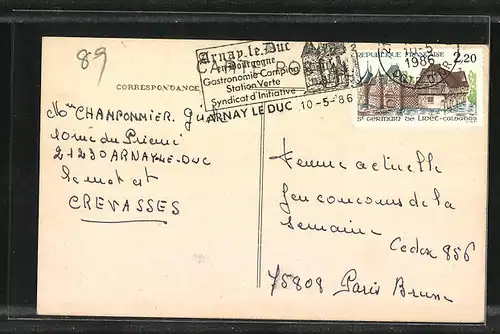 89
Arnay-le-Duc
en Bourgogne
Gastronomie-Camping
Station Verte
Syndicat d'Initiative
ARNAY LE DUC 10-5-86
10-5
1986
REPUBLIQUE FRANCAISE
2,20
St GERMAIN DE LIVET-CALVADOS
CORRESPONDANCE
CHAMPONNIER
21230 ARNAY-LE-DUC
Le mot est
CREVASSES
Femme actuelle
Jeu concours de la
semaine
Cedex 856
75808 Paris Brune